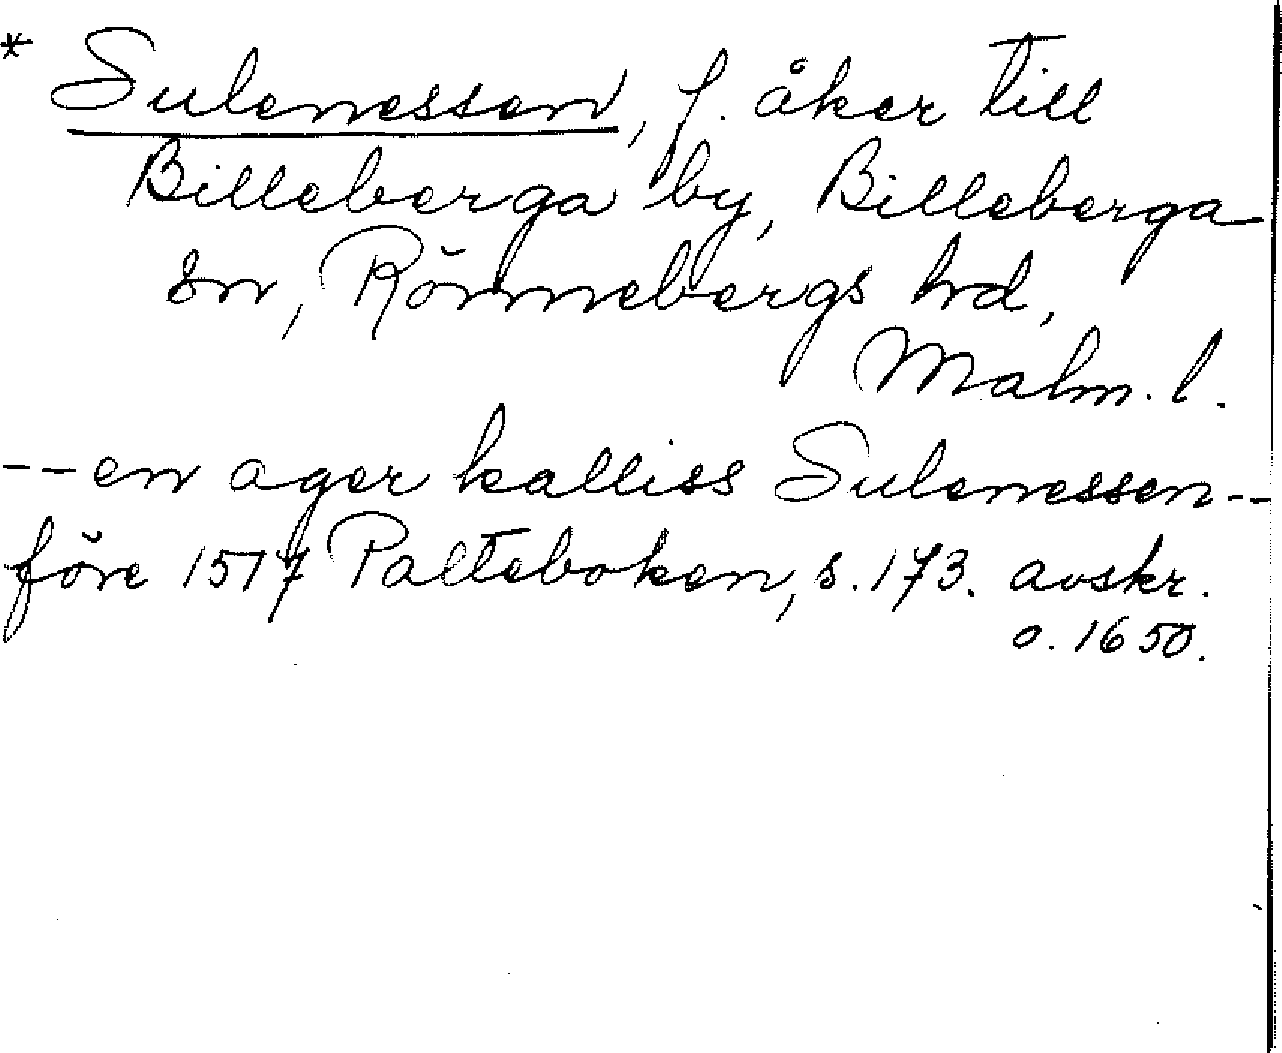 * Sulenessen, f. åker till
Billeberga by, Billeberga
sn, Rönnebergs hd,
Malm. l.
-- en ager kalliss Sulenessen --
före 1517 Palteboken, s. 173. avskr.
o. 1650.